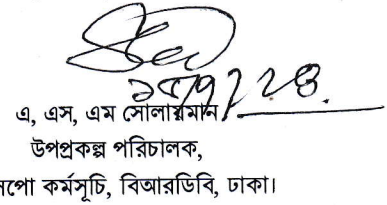 ১৫/৭/২৪.
এ, এস, এম সোলায়মান
উপপ্রকল্প পরিচালক,
কর্মসূচি, বিআরডিবি, ঢাকা।